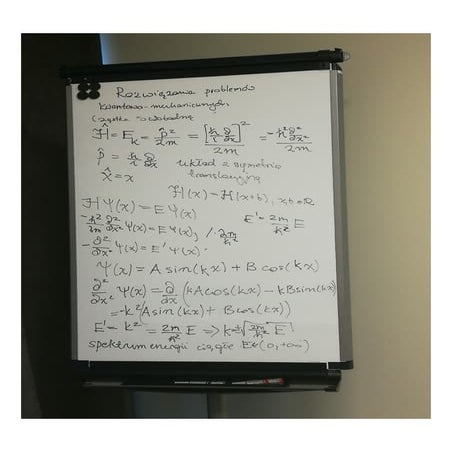 Rozwiązania problemów
kwantowo-mechanicznych
cząstka swobodna
Ĥ = E_k = p̂²/2m = [ħ/i ∂/∂x]²/2m = -ħ² ∂²/∂x²/2m
p̂ = ħ/i ∂/∂x układ z symetrią
x̂ = x translacyjną
Ĥ(x) = Ĥ(x+b), x,b∈ℝ
Ĥ Ψ(x) = E Ψ(x) E' = 2m/ħ² E
-ħ²/2m ∂²/∂x² Ψ(x) = E Ψ(x) /· 2m/ħ²
-∂²/∂x² Ψ(x) = E' Ψ(x)
Ψ(x) = A sin(kx) + B cos(kx)
∂²/∂x² Ψ(x) = ∂/∂x (kA cos(kx) - kB sin(kx))
= -k² (A sin(kx) + B cos(kx))
E' = k² = 2m/ħ² E => k = ±√(2m/ħ² E)
spektrum energii ciągłe E∈(0,+∞)